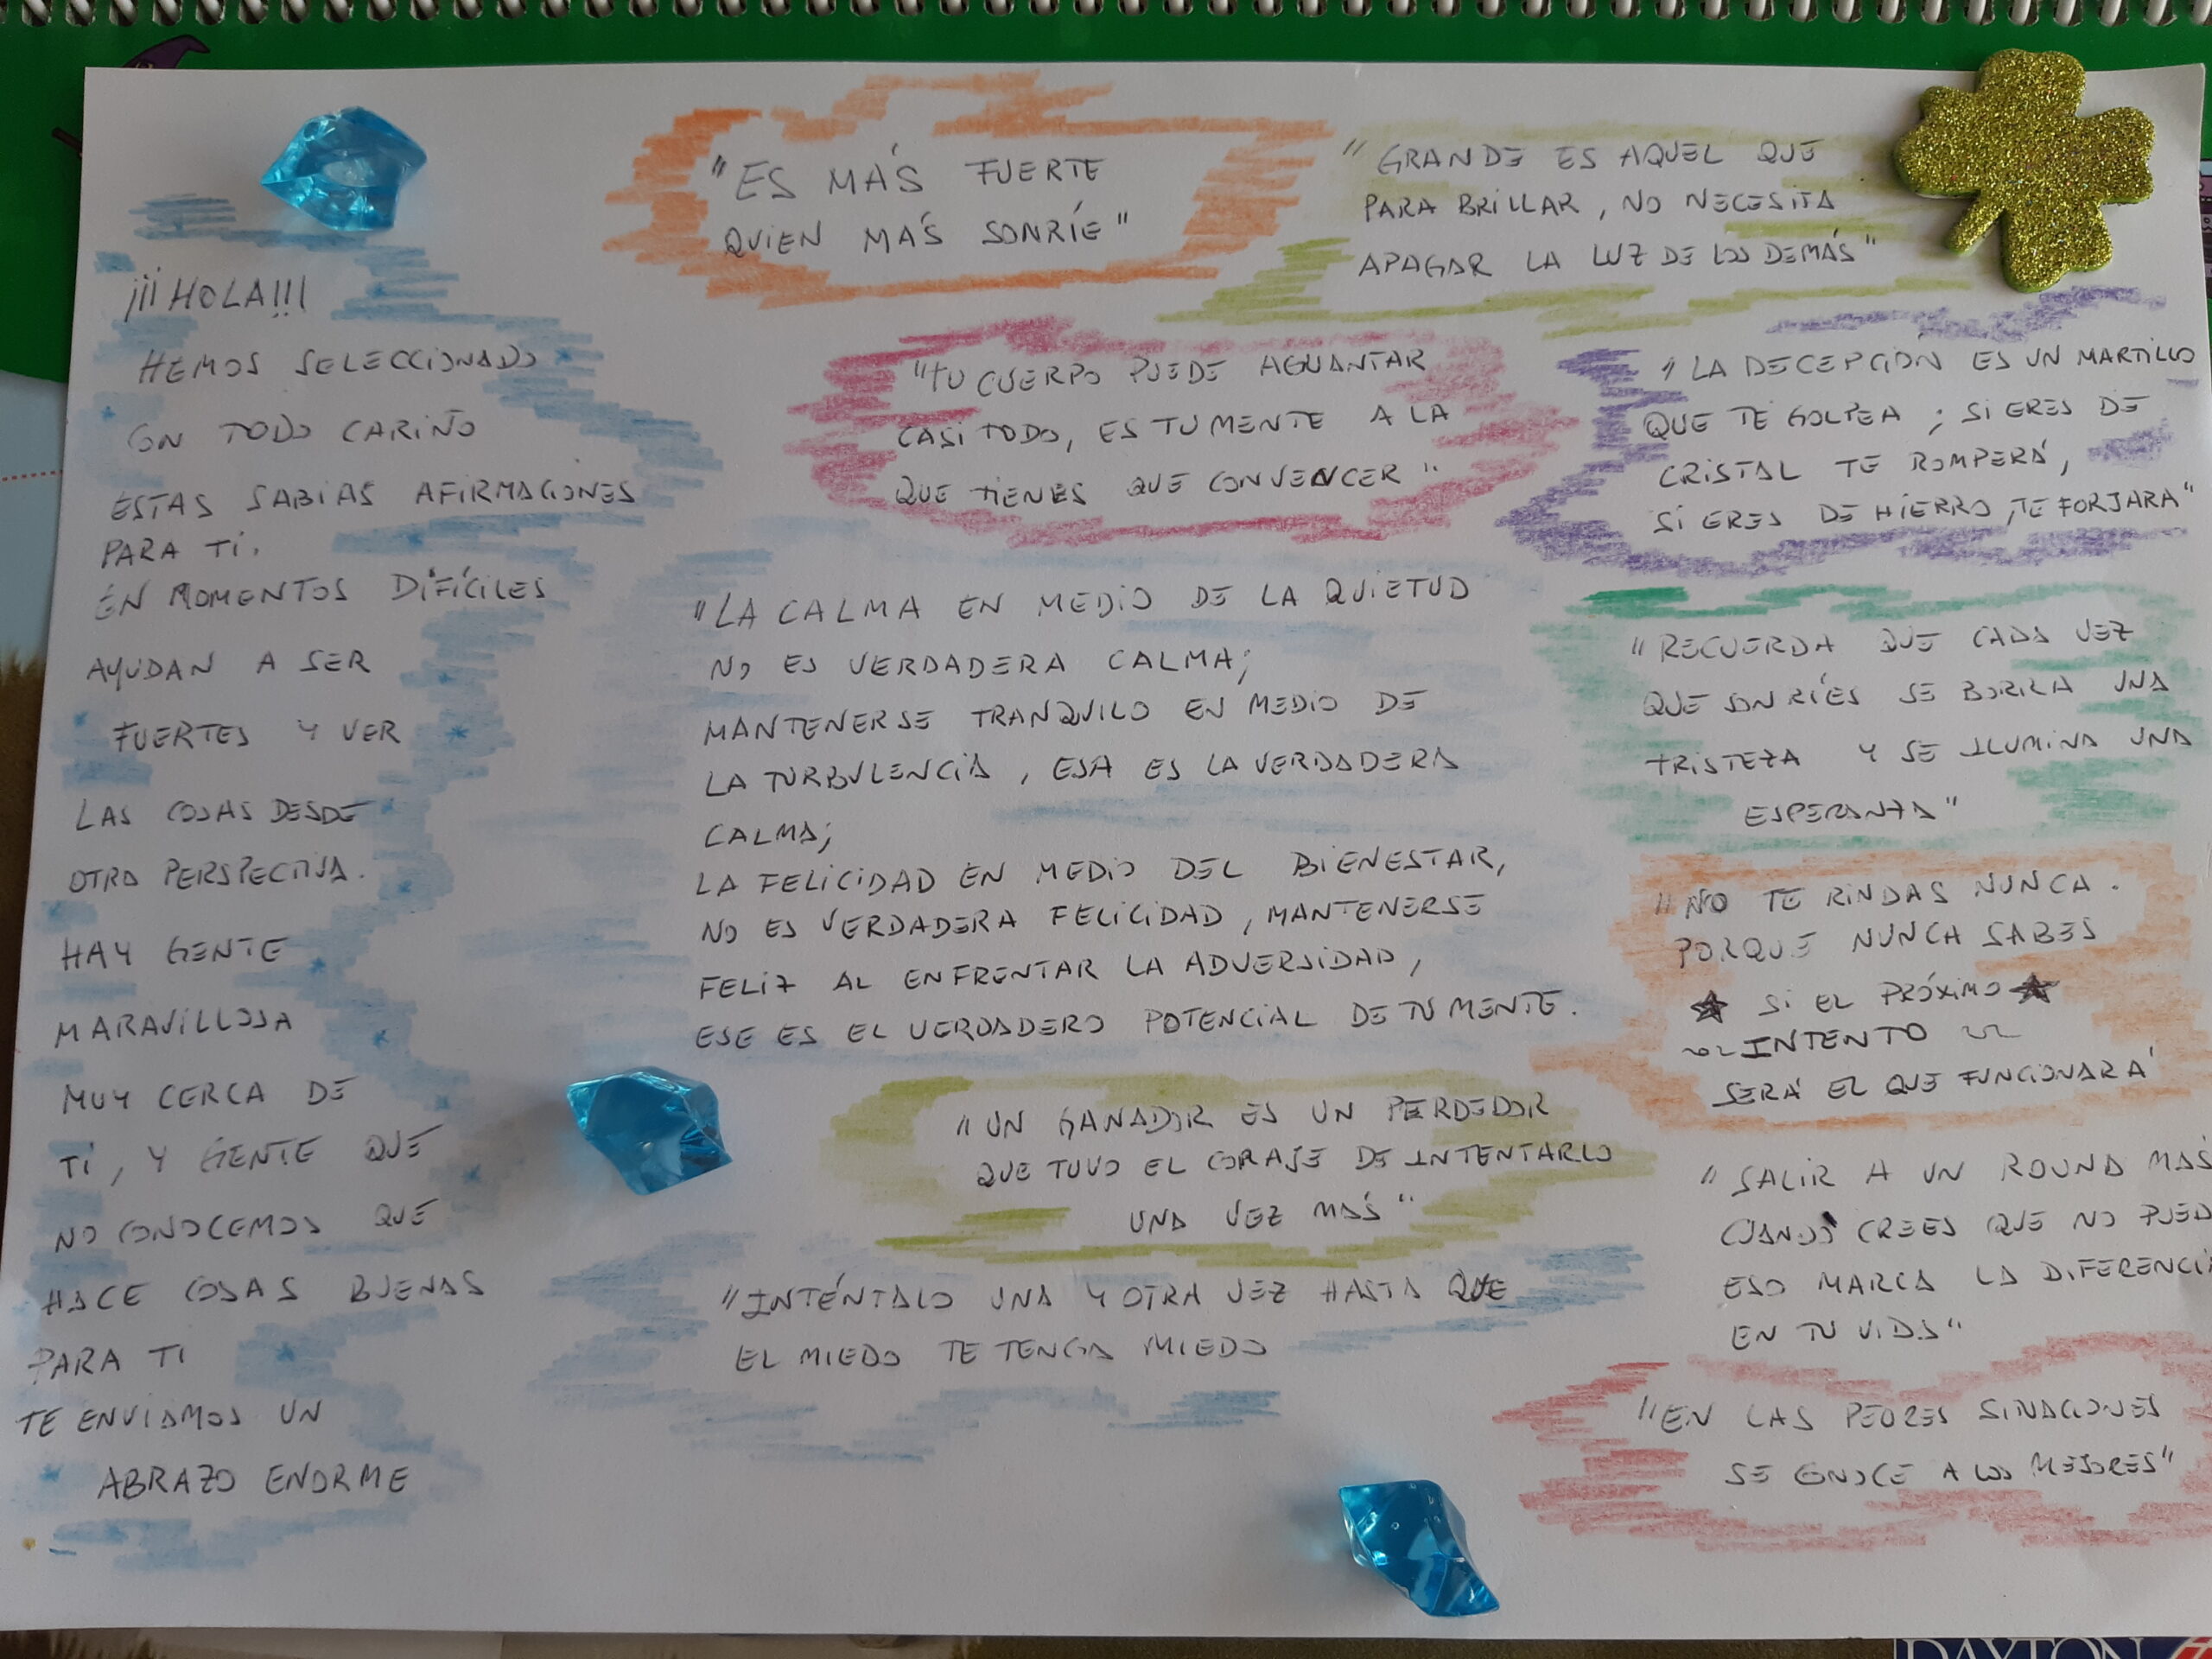 ¡¡¡HOLA!!!
HEMOS SELECCIONADO
CON TODO CARIÑO
ESTAS SABIAS AFIRMACIONES
PARA TI.
EN MOMENTOS DIFÍCILES
AYUDAN A SER
FUERTES Y VER
LAS COSAS DESDE
OTRA PERSPECTIVA.
HAY GENTE
MARAVILLOSA
MUY CERCA DE
TI, Y GENTE QUE
NO CONOCEMOS QUE
HACE COSAS BUENAS
PARA TI
TE ENVIAMOS UN
ABRAZO ENORME
"ES MÁS FUERTE
QUIEN MÁS SONRÍE"
"GRANDE ES AQUEL QUE
PARA BRILLAR, NO NECESITA
APAGAR LA LUZ DE LOS DEMÁS"
"TU CUERPO PUEDE AGUANTAR
CASI TODO, ES TU MENTE A LA
QUE TIENES QUE CONVENCER"
"LA DECEPCIÓN ES UN MARTILLO
QUE TE GOLPEA; SI ERES DE
CRISTAL TE ROMPERÁ,
SI ERES DE HIERRO, TE FORJARA"
"LA CALMA EN MEDIO DE LA QUIETUD
NO ES VERDADERA CALMA;
MANTENERSE TRANQUILO EN MEDIO DE
LA TURBULENCIA, ESA ES LA VERDADERA
CALMA;
LA FELICIDAD EN MEDIO DEL BIENESTAR,
NO ES VERDADERA FELICIDAD, MANTENERSE
FELIZ AL ENFRENTAR LA ADVERSIDAD,
ESE ES EL VERDADERO POTENCIAL DE TU MENTE.
"RECUERDA QUE CADA VEZ
QUE SONRÍES SE BORRA UNA
TRISTEZA Y SE ILUMINA UNA
ESPERANZA"
"NO TE RINDAS NUNCA.
PORQUE NUNCA SABES
SI EL PRÓXIMO
INTENTO
SERÁ EL QUE FUNCIONARÁ
"UN GANADOR ES UN PERDEDOR
QUE TUVO EL CORAJE DE INTENTARLO
UNA VEZ MÁS"
"SALIR A UN ROUND MÁS
CUANDO CREES QUE NO PUED
ESO MARCA LA DIFERENCIA
EN TU VIDA"
"INTÉNTALO UNA Y OTRA VEZ HASTA QUE
EL MIEDO TE TENGA MIEDO
"EN LAS PEORES SITUACIONES
SE CONOCE A LOS MEJORES"
DAYTON